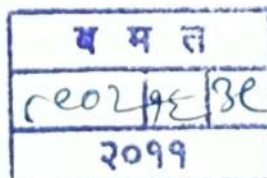 ब म त
८९०२ १६ ३९
२०११